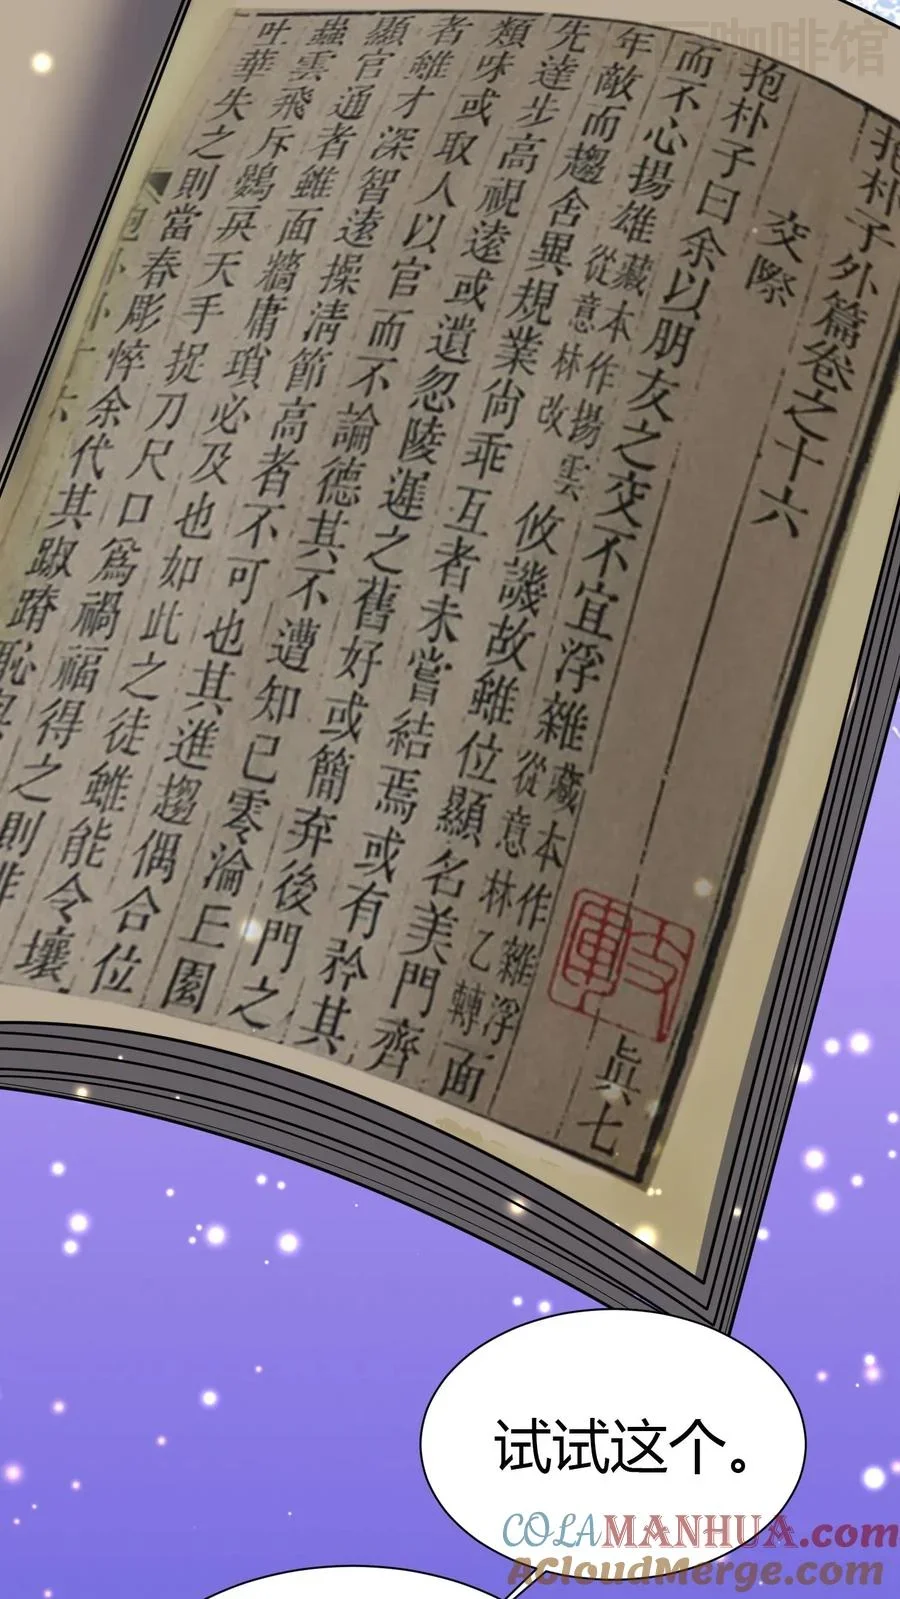 咖啡馆
抱朴子外篇卷之十六
交際
抱朴子曰余以朋友之交不宜浮雜
而不心揚雄藏本作揚雲從意林改攸譏故雖位顯名美門齊
年敵而趨舍異規業尚乖互者未嘗結焉或有矜其
先達步高視遠或遺忽陵遲之舊好或簡弃後門之
類味或取人以官而不論德其不遭知已零淪丘園
者雖才深智遠操清節高者不可也其進趨偶合位
顯官通者雖面牆庸瑣必及也如此之徒雖能令壤
蟲雲飛斥鷃戾天手捉刀尺口為禍福得之則排
吐華失之則當春彫悴余代其踧踖恥與
藏本作雜浮從意林乙轉面
貞七
试试这个。
COLAMANHUA.com
ACloudMerge.com